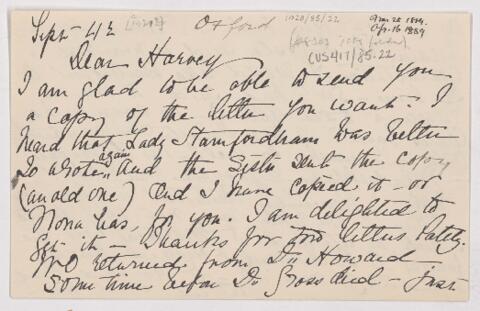 Sept 4th
Oxford
1120/85/22
CUS417/85.22
Dear Harvey
I am glad to be able to send you
a copy of the letter you want. I
heard that Lady Stamfordham was better
So wrote again and the Sister sent the copy
(an old one) and I have copied it – or
Nona has, for you. I am delighted to
get it – Thanks for two letters lately.
We returned from Dr Howard
some time before Dr Gross died – just